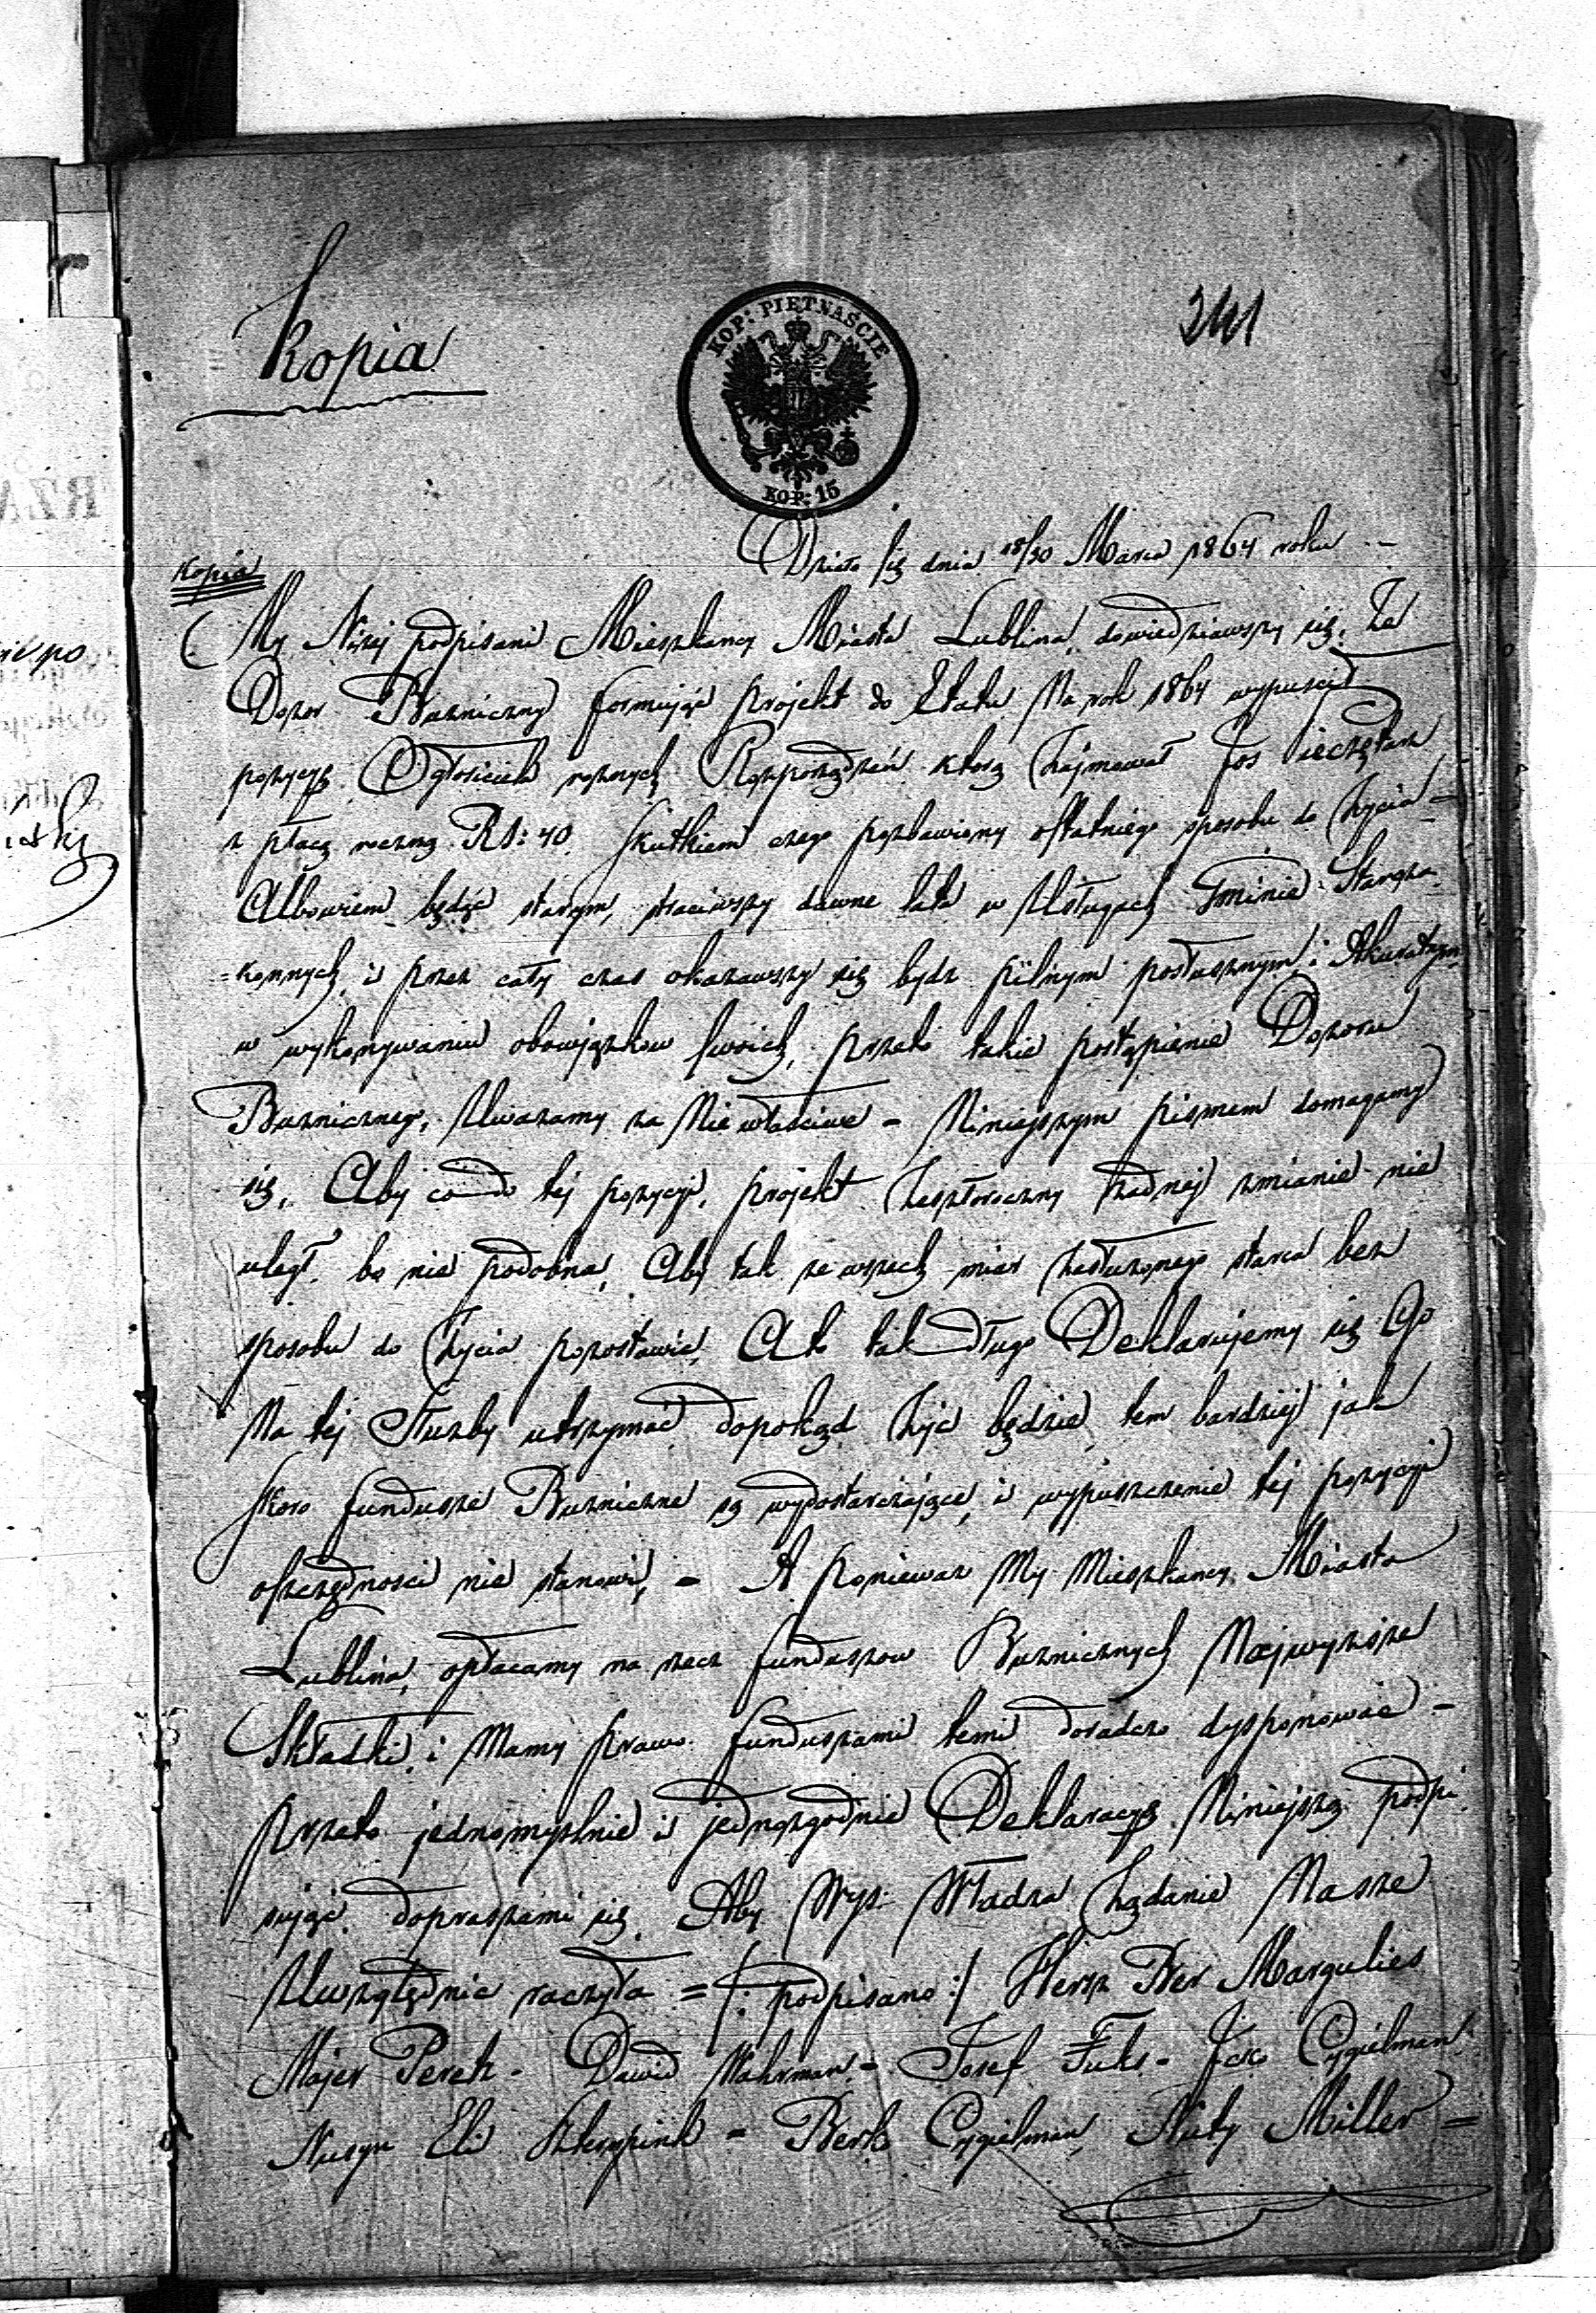 Kopia
KOP: PIĘTNAŚCIE
KOP: 15
241
Działo się dnia 18/30 Marca 1864 roku
Kopia
My Niżej podpisani Mieszkancy Miasta Lublina, dowiedziawszy się, Że
Dozor Bużniczny formując projekt do Etatu Na rok 1864 wypuścił
pozycyę Ogłosiciela rożnych Rozporządzeń ktorą Zajmował Jos
z płacą roczną RS: 40. skutkiem czego pozbawiony ostatniego sposobu do życia =
Albowiem będąc starym, straciwszy dawne lata w Usługach Gminie Staroza=
=konnych, i przez cały czas okazawszy się bydz pilnym posłusznym i Akuratnym
w wykonywaniu obowiązkow swoich, przeto takie postąpienie Dozoru
Bużnicznego, Uważamy za Nie właściwe – Niniejszym pismem domagamy
się, Aby co do tej pozycyi, projekt zeszłoroczny żadnej zmianie nie
uległ, bo nie podobna, Aby tak ze wszech miar zasłużonego starca bez
sposobu do życia pozostawić, A to tak długo Deklarujemy się Go
Na tej Służby utrzymać dopokąd żyć będzie, tem bardziej jak
skoro fundusze Bużniczne są wydostarczające, i wypuszczenie tej pozycyi
oszczędnosci nie stanowi, – A ponieważ My Mieszkancy Miasta
Lublina, opłacamy na rzecz funduszow Bużnicznych Najwyższe
Składki, i Mamy prawo funduszami temi doradczo dysponować –
przeto jednomyślnie i jednozgodnie Deklaracyę Niniejszą podpi
sując dopraszami się, Aby Wyż: Władza żądanie Nasze
Uwzględnić raczyła = /: podpisano :/ Hersz Ber Margulies
Majer Perek – Dawid Wahrman – Josef Fuks – Icko Cygielman
Nusyn Eli – Berk Cygielman, Nuty Miller =